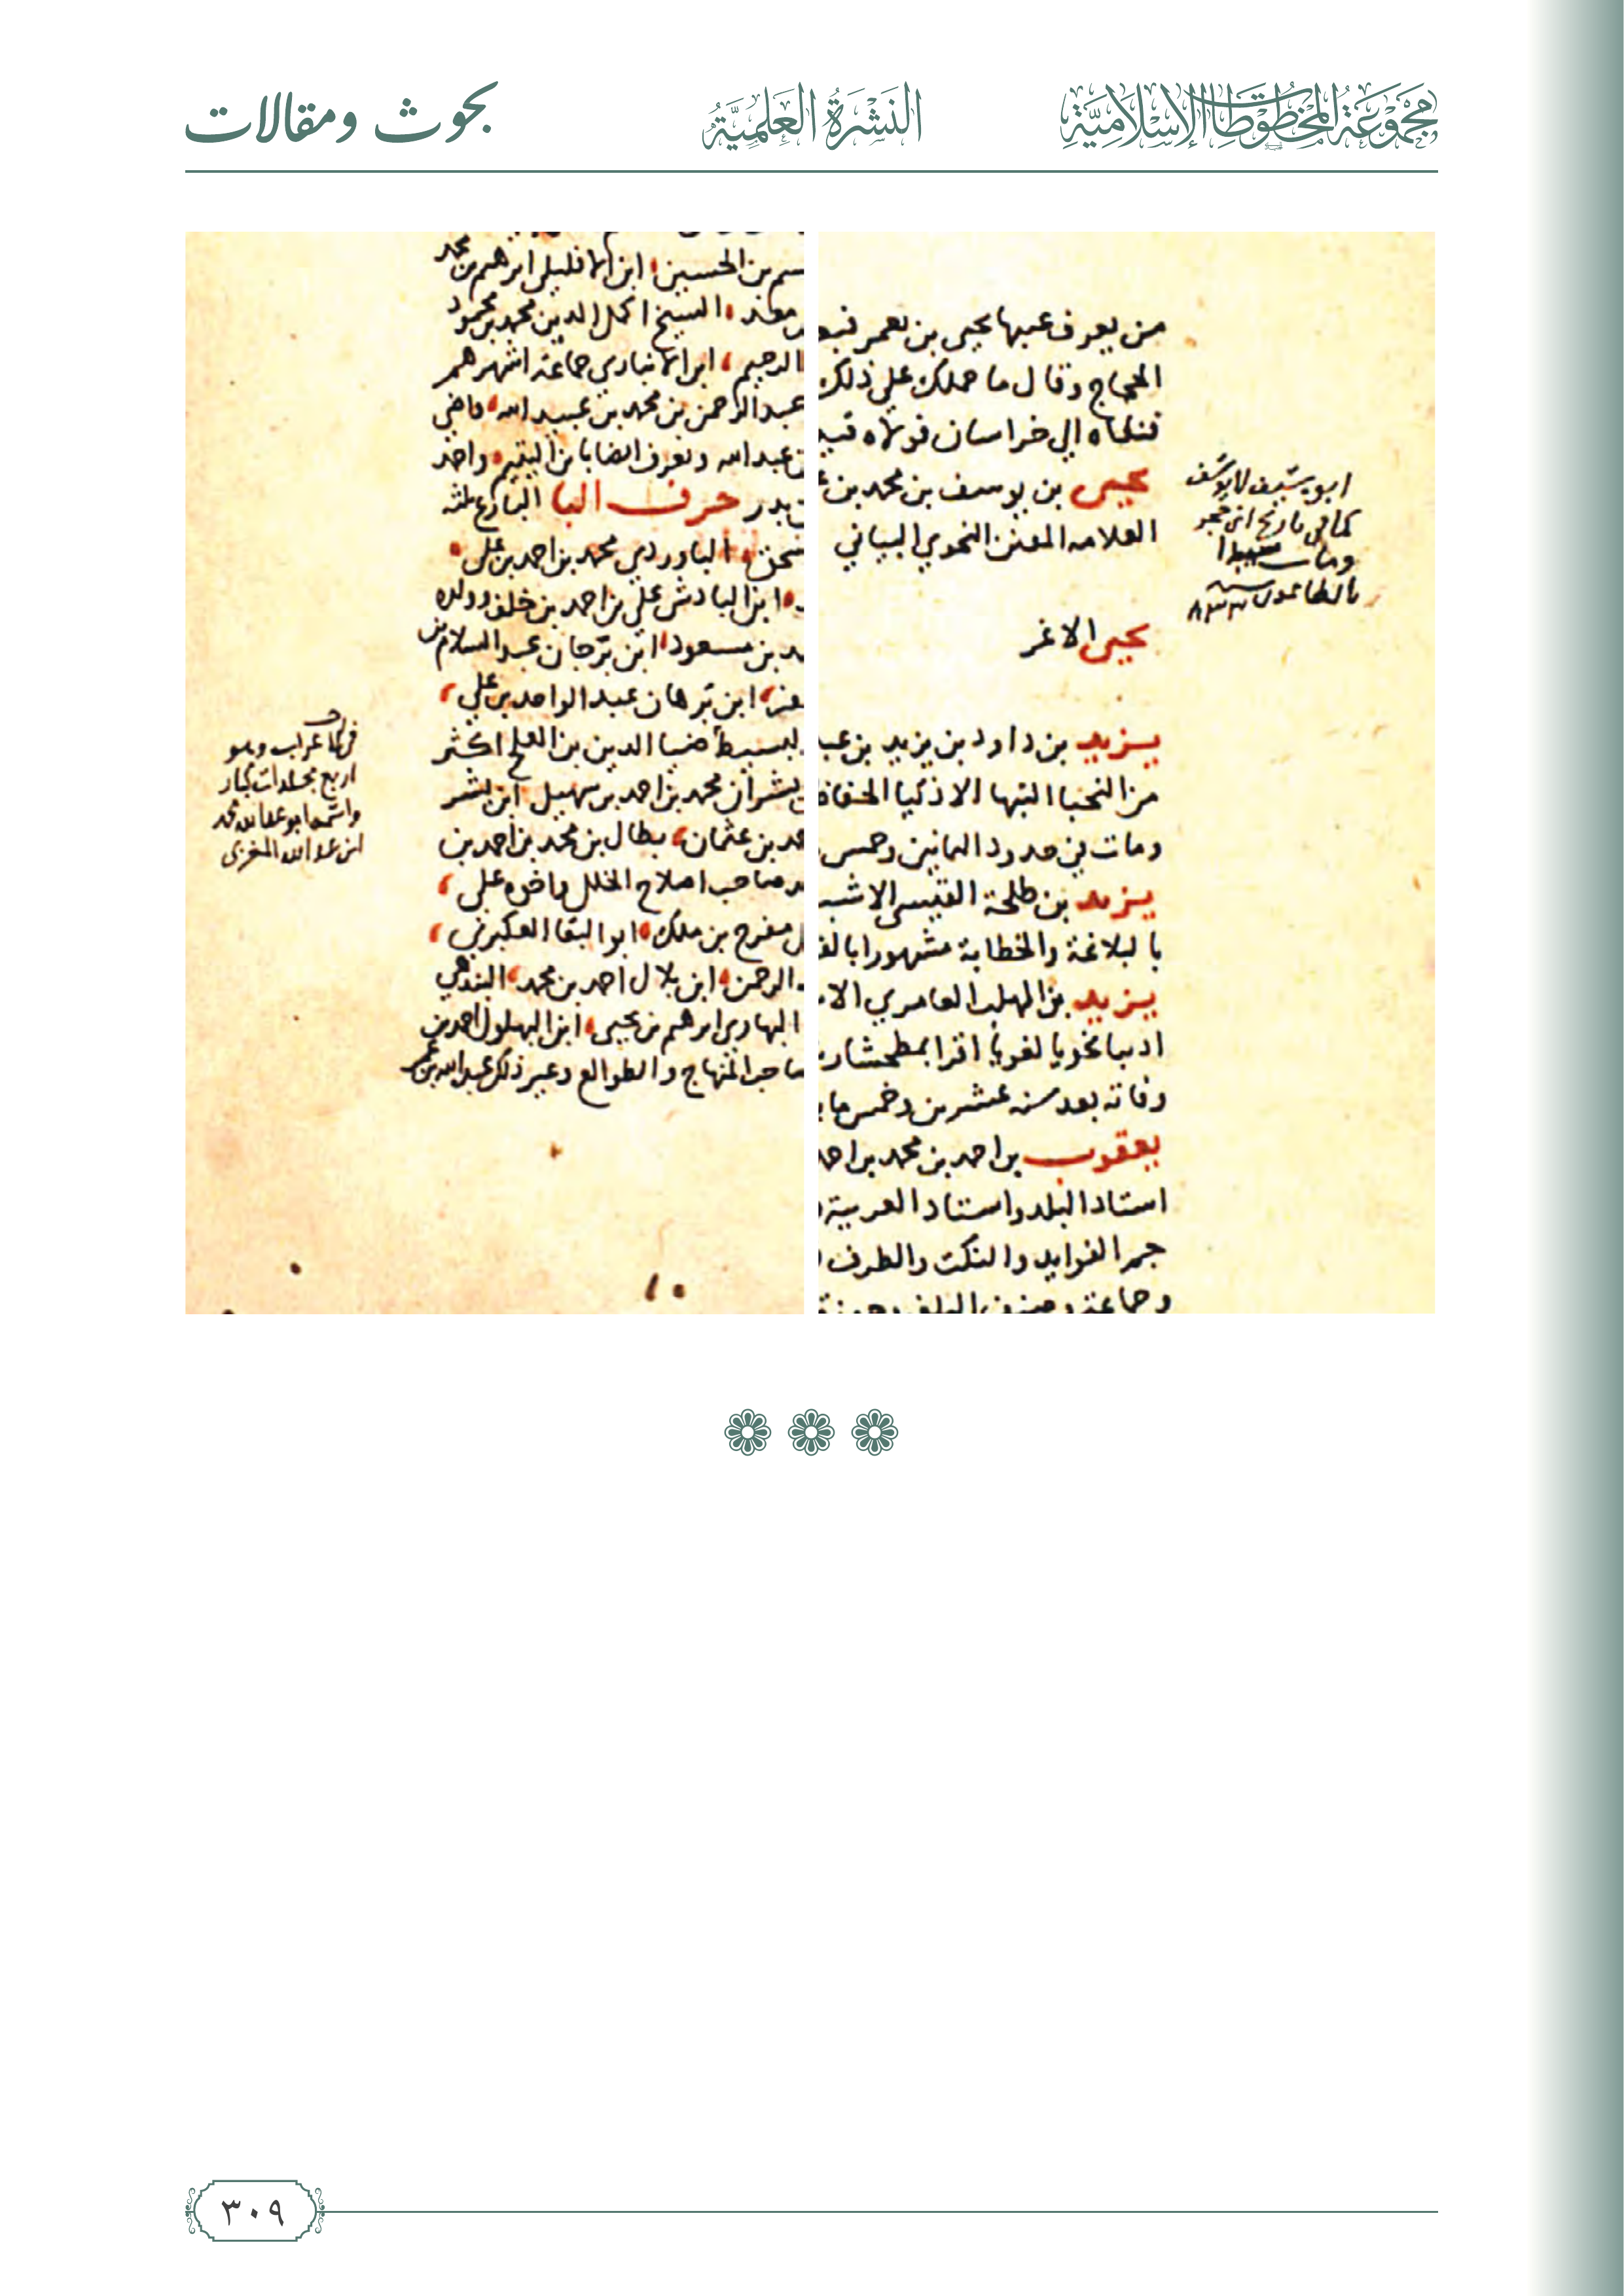 مجموعة المخطوطات الإسلامية
النشرة العلمية
بحوث ومقالات
من يعرف عيبها يحيى بن يعمر فبعـ
الحجاج وقال ما حملك على ذلك
فنفاه الي خراسان فولاه قتيـ
يحيى بن يوسف بن محمد بن عـ
العلامه المفنن النحوي البياني
يحيى الاغر
يزيد بن داود بن يزيد بن عبـ
من النجبا النبها الاذكيا الحفاظ
ومات في حدود الثمانين وخمس
يزيد بن طلحة القيسي الاشبـ
بالبلاغة والخطابة مشهورا بالفـ
يزيد بن المهلب العامري الا
اديبا نحويا لغويا اقرا
وفاته بعد سنه عشرين وخمس ما يـ
يعقوب بن احمد بن محمد بن احمد
استاد البلد واستاد العربية و
جم الفوايد والنكت والطرف
وجماعة وصنف
ابو سيف لا يوسف
كما في تاريخ ابن حجر
ومات
بالطاعون سنه ٨٣٣
ـسم بن الحسين ابن الافليلي ابرهيم بن محمد
معد الشيخ اكمل الدين محمد بن محمود
الرحيم ابن الانباري جماعة اشهرهم
عبد الرحمن بن محمد بن عبيد الله
بن عبد الله ويعرف ايضا بابن اليتيم واحمد
بدر حرف البا البارع ثلثه
الباوردي محمد بن احمد بن علي
ابن الباذش علي بن احمد بن خلف وولده
بن مسعود ابن برجان عبد السلام بن
ابن برهان عبد الواحد بن علي
البسيط ضيا الدين بن العلج اكثر
بشران محمد بن احمد بن سهيل ابن بشر
بن عثمان بطال بن محمد بن احمد بن
صاحب اصلاح الخلل واخوه علي
مفرج بن ملك ابو البقا العكبري
الرحمن ابن بلال احمد بن محمد البندهي
البهاري ابرهيم بن يحيى ابن البهلول احمد بن
صاحب المنهاج والطوالع وغير ذلك عبد الله بن عمر
اعراب وهو
اربع مجلدات كبار
واسمه ابو عبد الله محمد
ابن عبد الله المغربي
١٠
٣٠٩